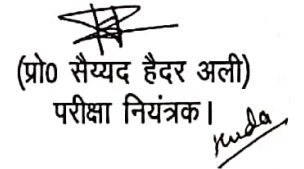 (प्रो0 सैय्यद हैदर अली)
परीक्षा नियंत्रक।